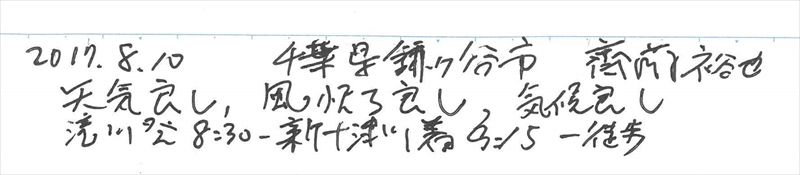 2017.8.10 千葉県鎌ヶ谷市 齊藤裕也
天気良し、風水てろ良し、気候良し
滝川発 8:30-新十津川着 9:15 -徒歩